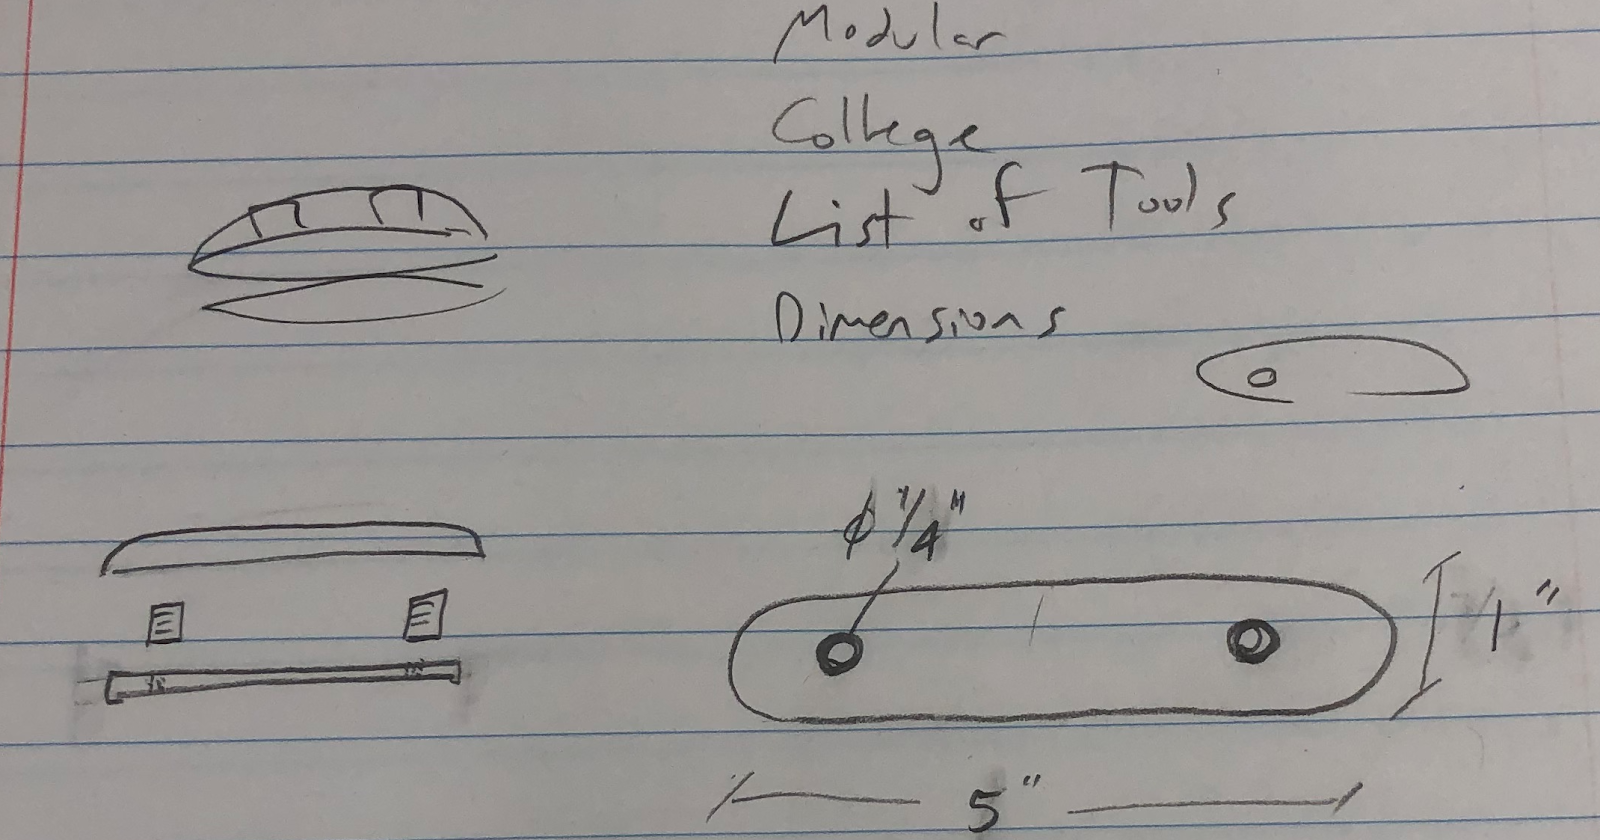 Modular
College
List of Tools
Dimensions
ϕ 1/4"
1"
5"